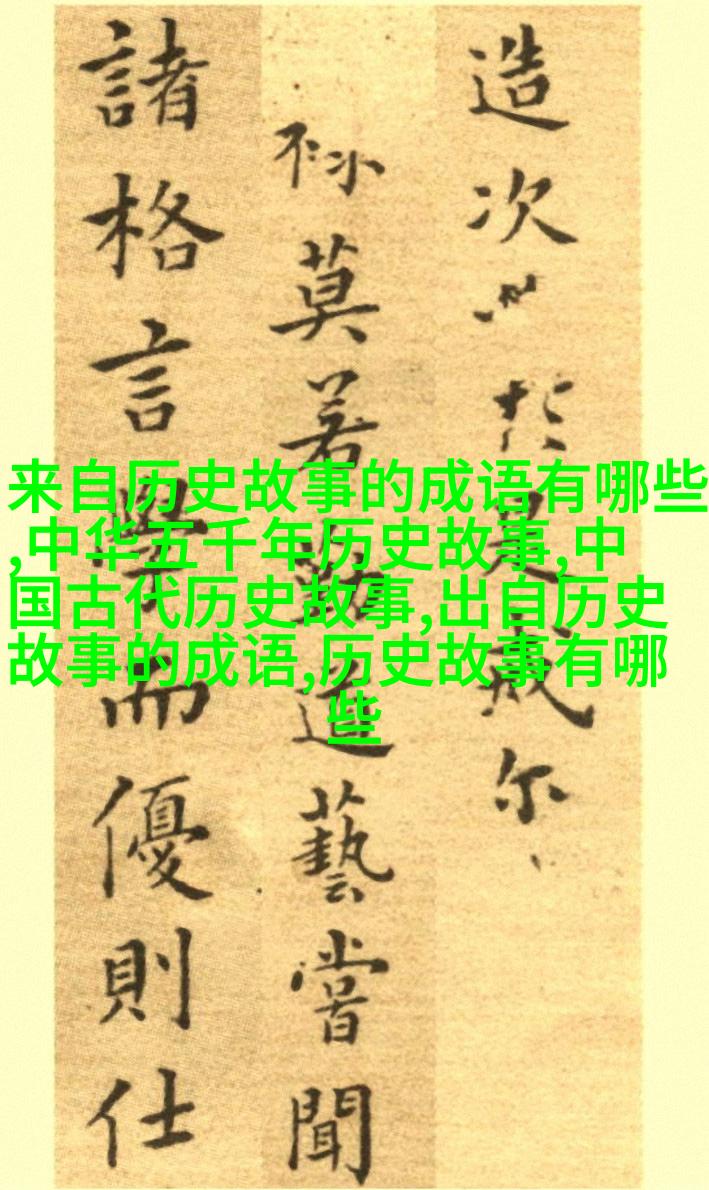 造次必於是戒尔
莫若勤道藝嘗聞
諸格言學而優則仕
来自历史故事的成语有哪些
,中华五千年历史故事,中
国古代历史故事,出自历史
故事的成语,历史故事有哪
些